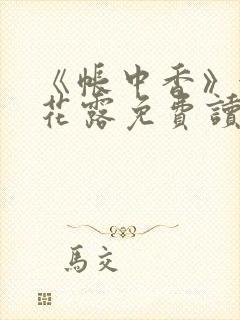 《帳中香》
花露免費讀
馬交